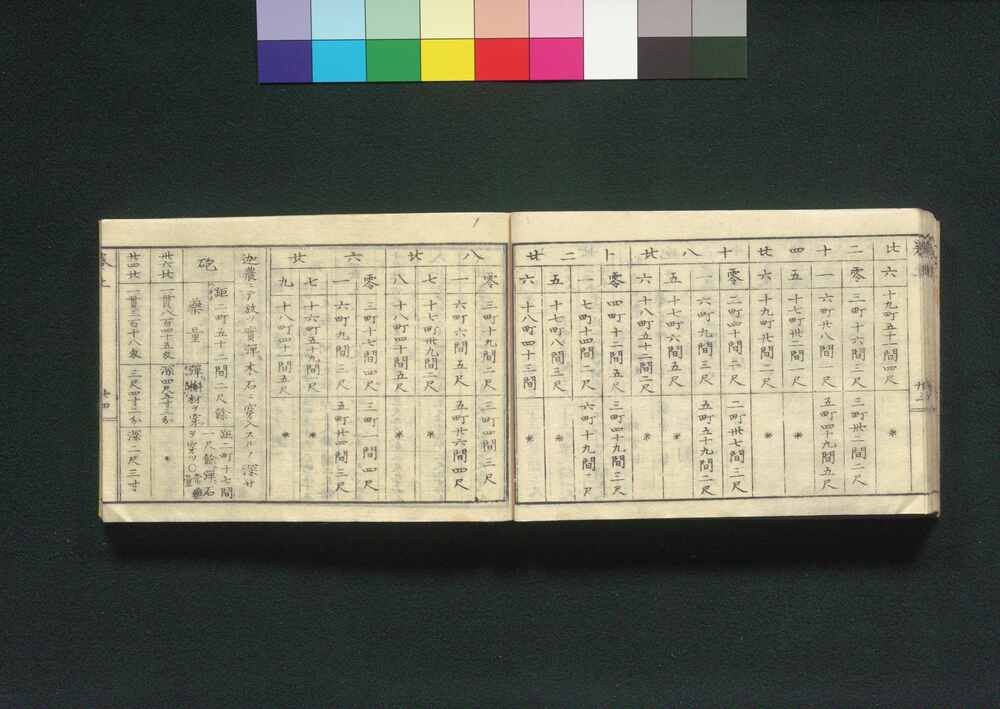 比
二十四比
十八比
十二比
六 十九町五十二間四尺 *
零 三町十六間三尺 三町卅二間二尺
一 六町廿八間一尺 五町四十九間五尺
五 十七町卅二間一尺 *
六 十九町廿間二尺 *
零 二町四十間二尺 二町卅七間三尺
一 六町九間三尺 五町五十九間二尺
五 十七町六間五尺 *
六 十八町五十二間二尺 *
零 四町十二間五尺 三町四十九間三尺
一 七町十四間二尺 六町十九間二尺
五 十七町八間三尺 *
六 十八町四十三間 *
八比
六比
零 三町十九間二尺 三町四間三尺
一 六町六間五尺 五町卅六間四尺
七 十七町卅九間二尺 *
八 十八町四十間五尺 *
零 三町十七間四尺 三町一間四尺
一 六町九間三尺 五町廿四間三尺
七 十六町五十九間 尺 *
九 十八町四十一間五尺 *
迦農ニテ放ツ實彈木石ニ穿入スルノ深サ
砲
藥量
距二町五十二間二尺餘
彈檞材ヲ穿ツ
距二町十七間
一尺餘彈石
ヲ穿ツ
卅六比 一貫八百四十五錢 深四尺五寸三分 *
廿四比 一貫三百十八錢 三尺四寸二分 深二尺三寸
廿四